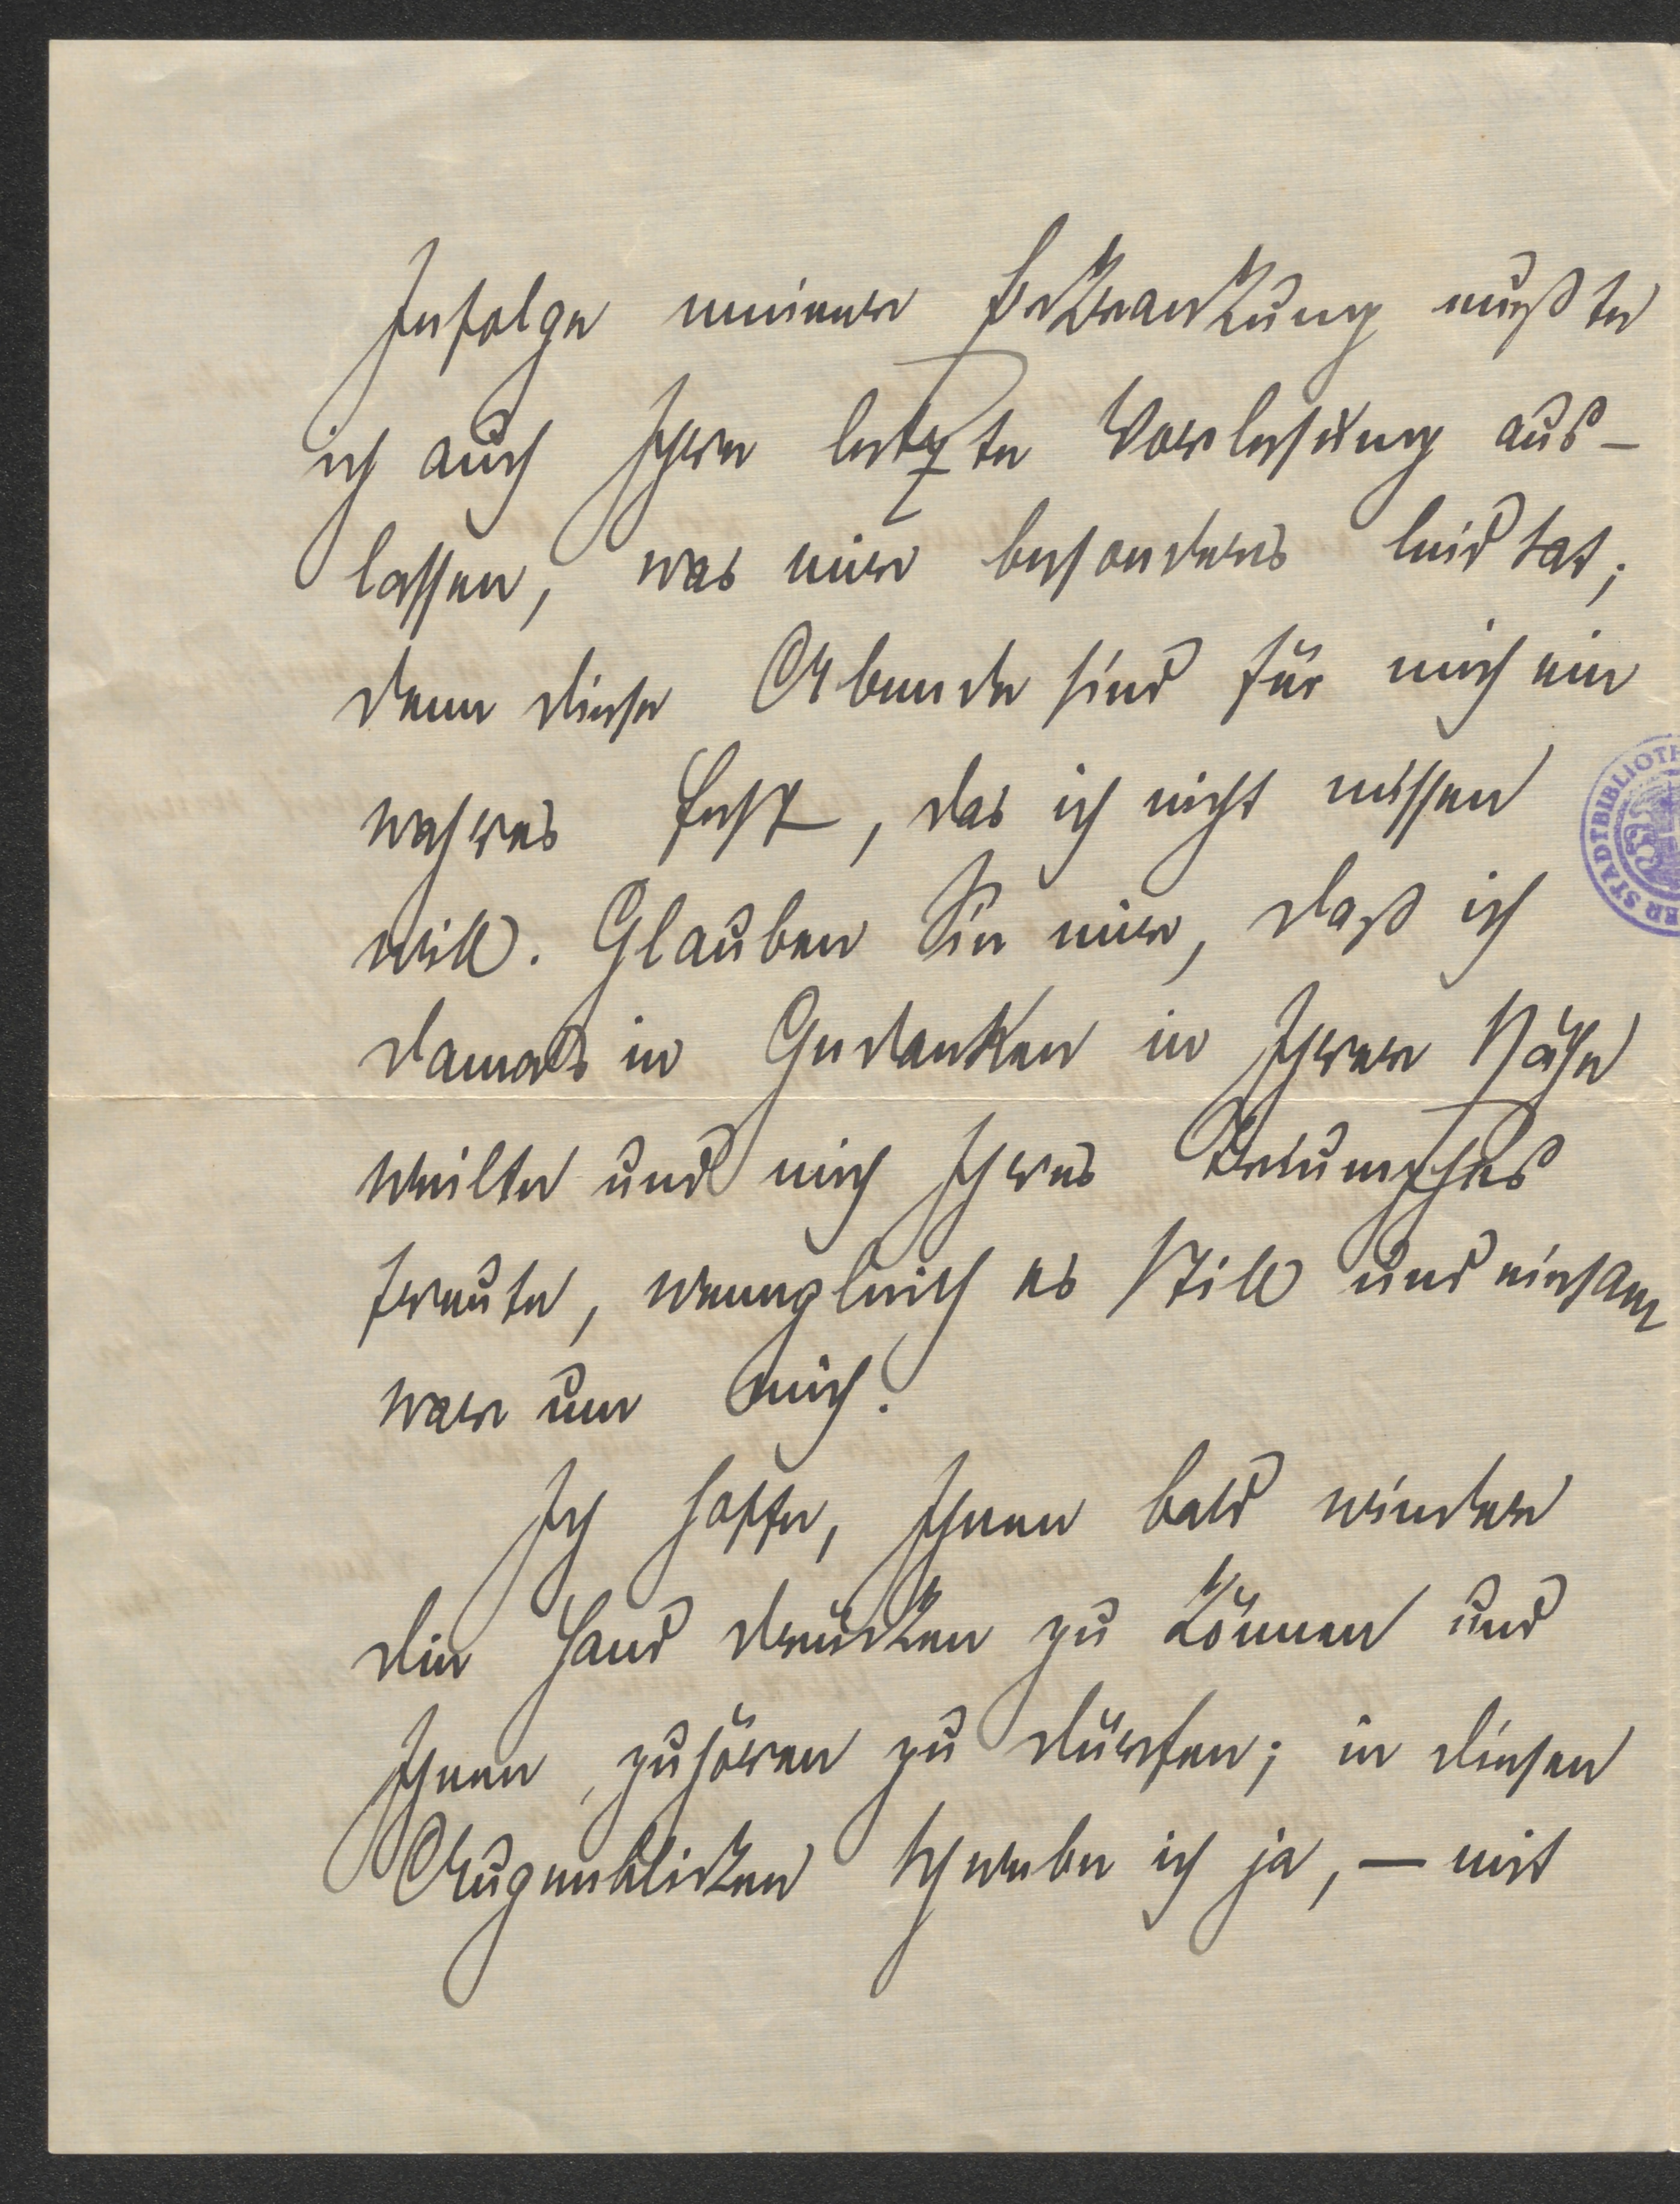 Infolge meiner Erkrankung mußte
ich auch Ihre letzte Vorlesung aus-
lassen, was mir besonders leid tat;
denn diese Abende sind für mich ein
wahres Fest, das ich nicht missen
will. Glauben Sie mir, daß ich
damals in Gedanken in Ihrer Nähe
weilte und mich Ihres Triumphes
freute, wenngleich es still und einsam
war um mich.
Ich hoffe, Ihnen bald wieder
die Hand drücken zu können und
Ihnen zuhören zu dürfen; in diesen
Augenblicken schwebe ich ja, — mit
STADTBIBLIOTHE